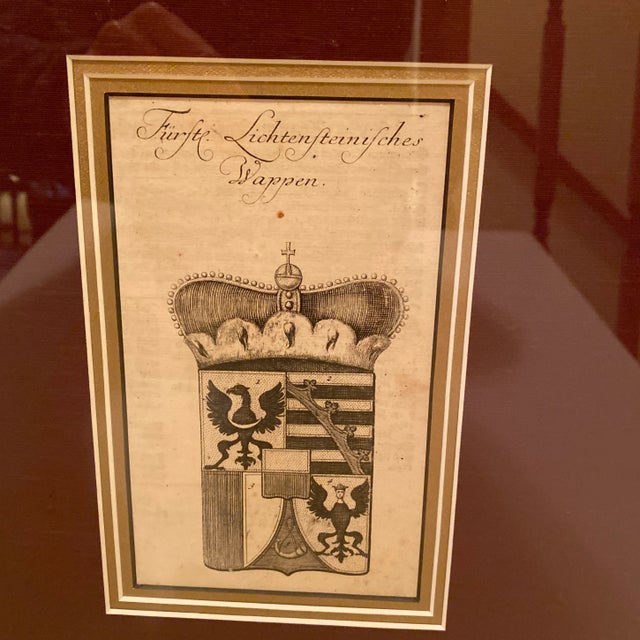 Fürstl. Lichtensteinisches
Wappen.
1
2
3
4